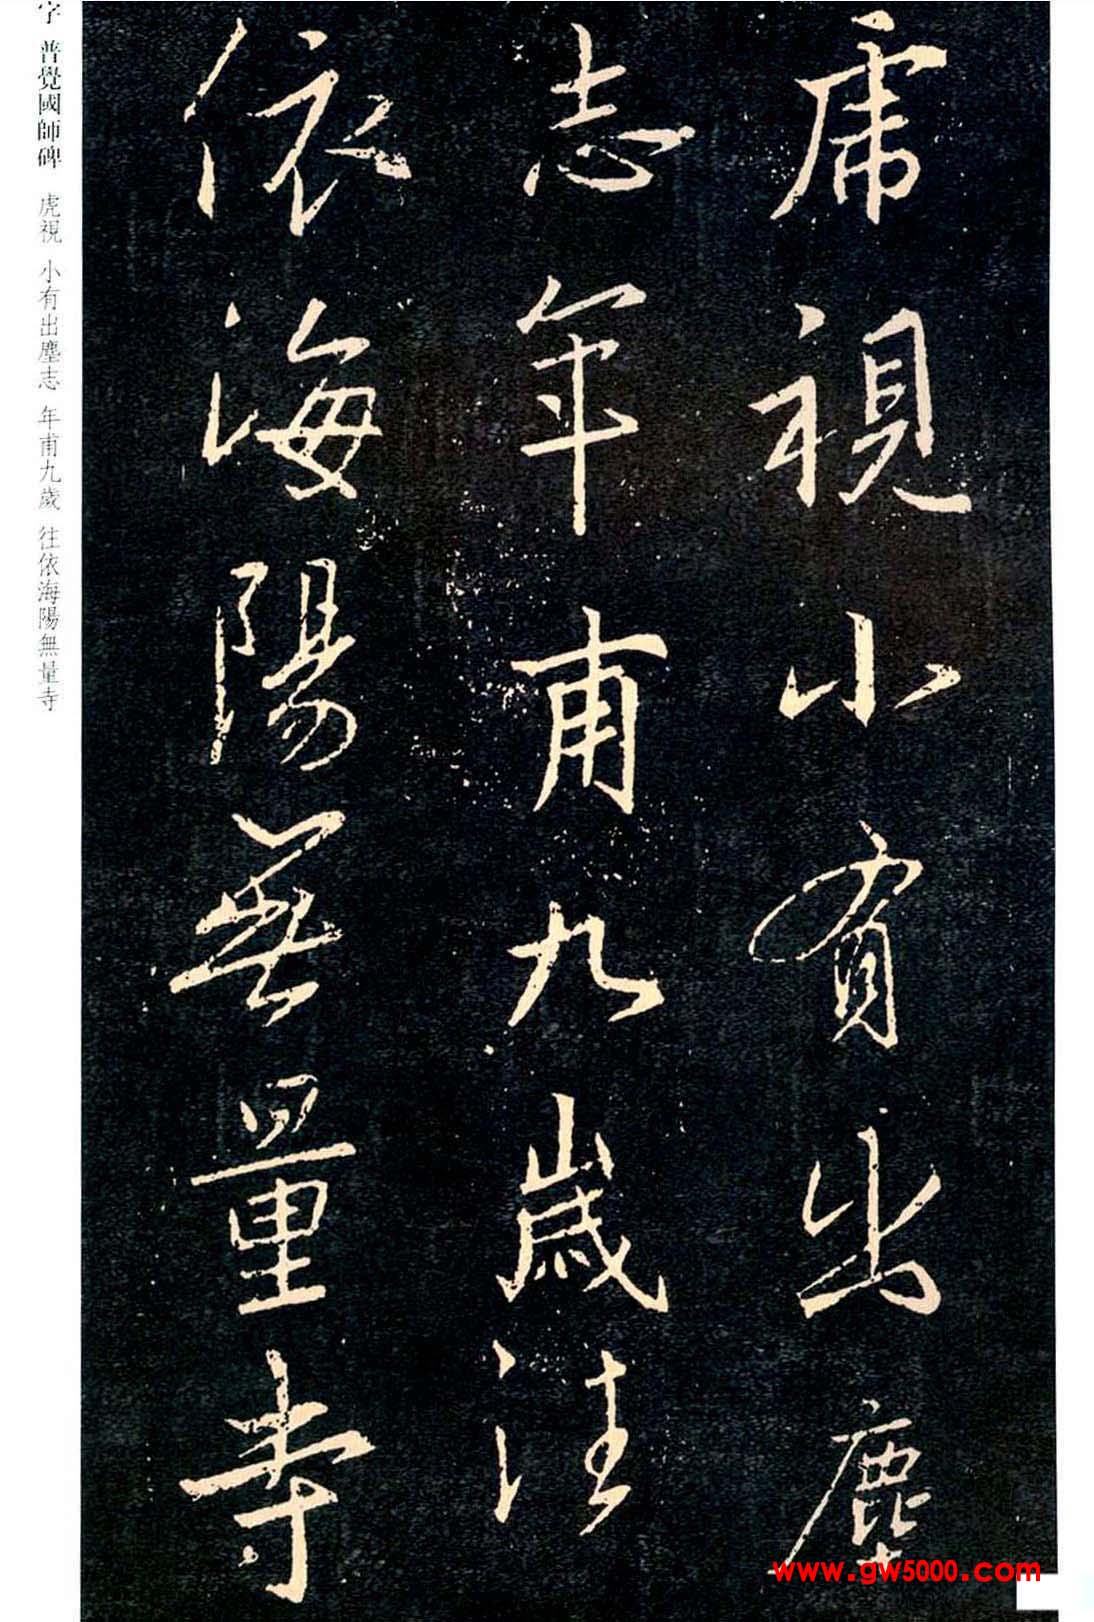 虎視小有出塵
志年甫九歲往
依海陽無量寺
字 普覺國師碑 虎視 小有出塵志 年甫九歲 往依海陽無量寺
www.gw5000.com